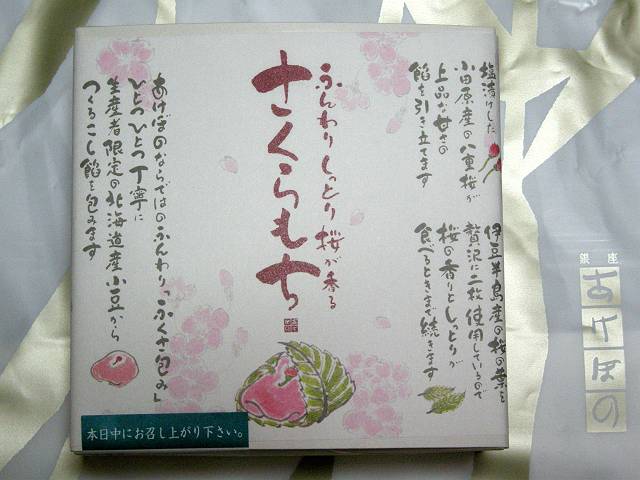 塩漬けした
小田原産の八重桜が
上品な甘さの
餡を引き立てます
伊豆半島産の桜の葉を
贅沢に二枚使用しているので
桜の香りとしっとりが
食べるときまで続きます
ふんわりしっとり桜が香る
さくらもち
あけぼのならではのふんわり「ふくさ包み」
ひとつひとつ丁寧に
生産者限定の北海道産小豆から
つくるこし餡を包みます
本日中にお召し上がり下さい。
銀座
あけぼの